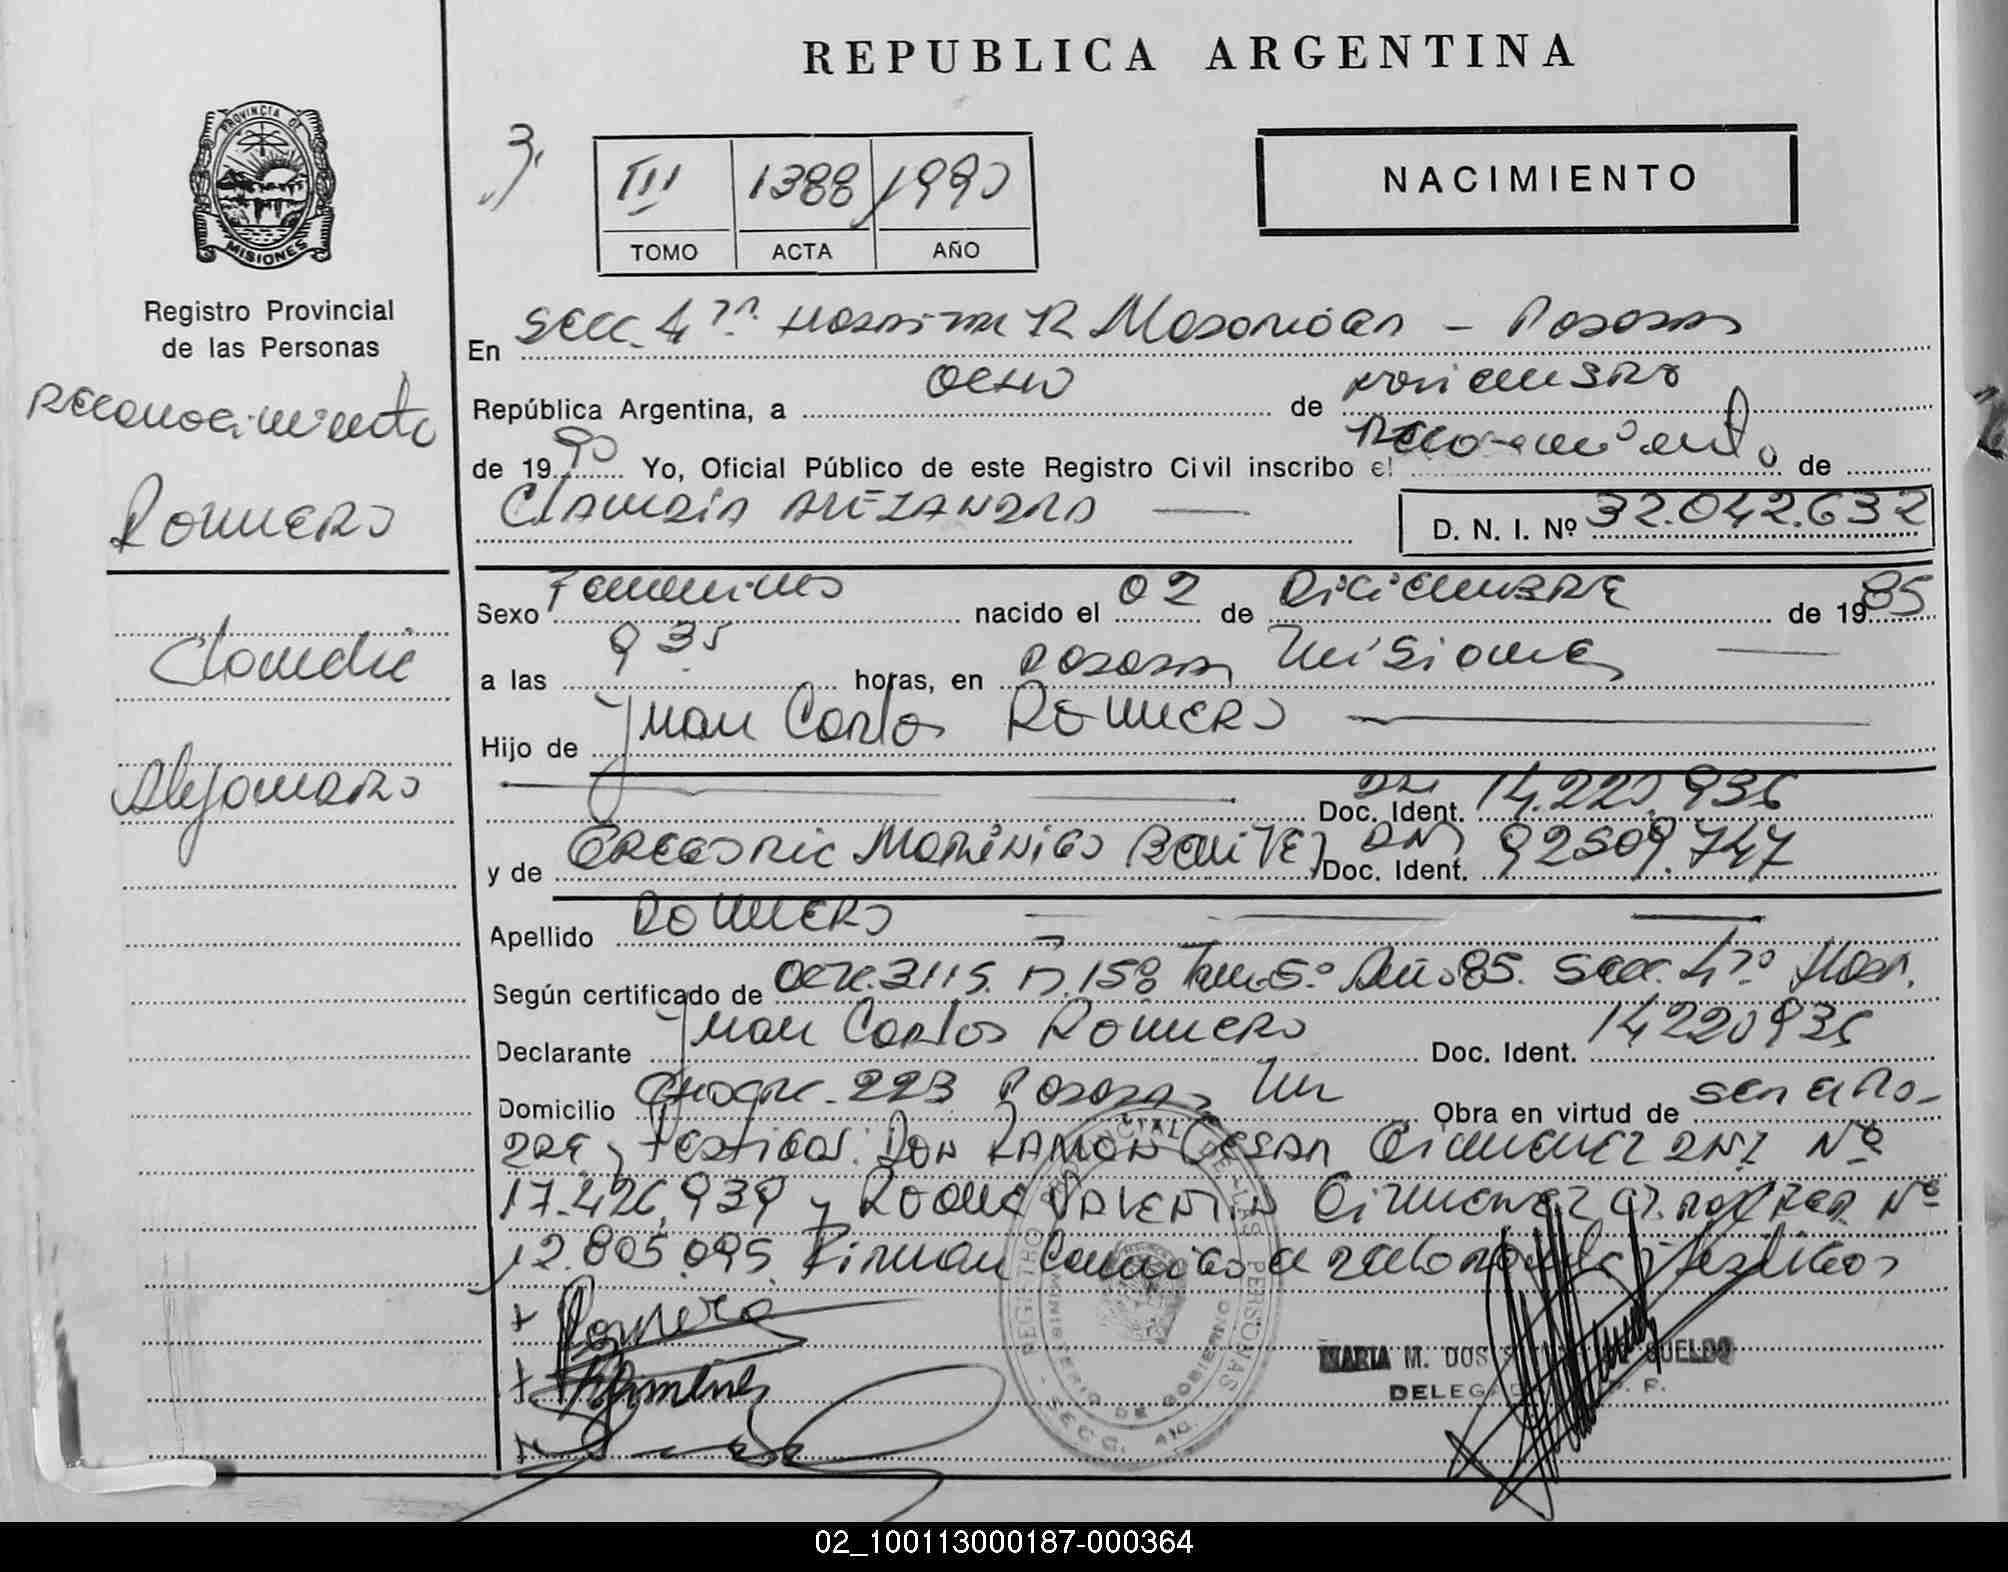 REPUBLICA ARGENTINA
PROVINCIA DE
MISIONES
Registro Provincial
de las Personas
Reconocimiento
Romero
Claudia
Alejandra
3.
III 1388 1990
TOMO ACTA AÑO
NACIMIENTO
En Secc. 4ta Hospital R Madariaga - Posadas
República Argentina, a ocho de noviembre
de 1990 Yo, Oficial Público de este Registro Civil inscribo el Reconocimiento de
Claudia Alejandra D. N. I. Nº 32.042.632
Sexo Femenino nacido el 02 de Diciembre de 1985
a las 9 35 horas, en Posadas Misiones
Hijo de Juan Carlos Romero
Doc. Ident. 14.220.936
y de Moríñigo Benitez Doc. Ident. 92509.747
Apellido Romero
Según certificado de 3115. 158 Tom 5º Año 85. Secc. 4ta Hosp.
Declarante Juan Carlos Romero Doc. Ident. 14220936
Domicilio 223 Posadas Mnes Obra en virtud de ser el Pa-
dre y testigos: Don Ramon Cesar Gimenez DNI Nº
17.426.939 y Roque Valentin Gimenez Nº
12.805.095. Firman conmigo el declarante y testigos
+ Romero
+ Gimenez
+
REGISTRO PROVINCIAL DE LAS PERSONAS
MINISTERIO DE GOBIERNO
SECC. 4ta.
MARIA M. DOS SUELDO
02_100113000187-000364